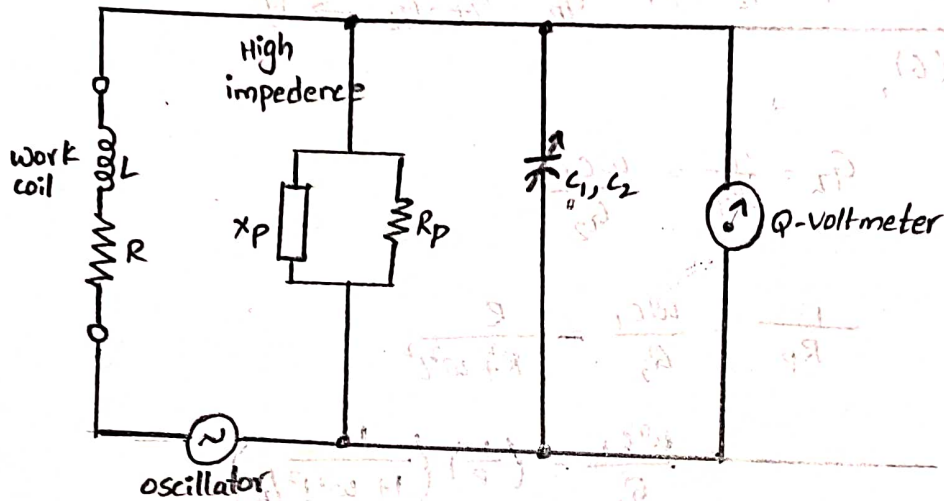 High
impedence
work
coil
L
R
Xp
Rp
C1, C2
Q-voltmeter
oscillator